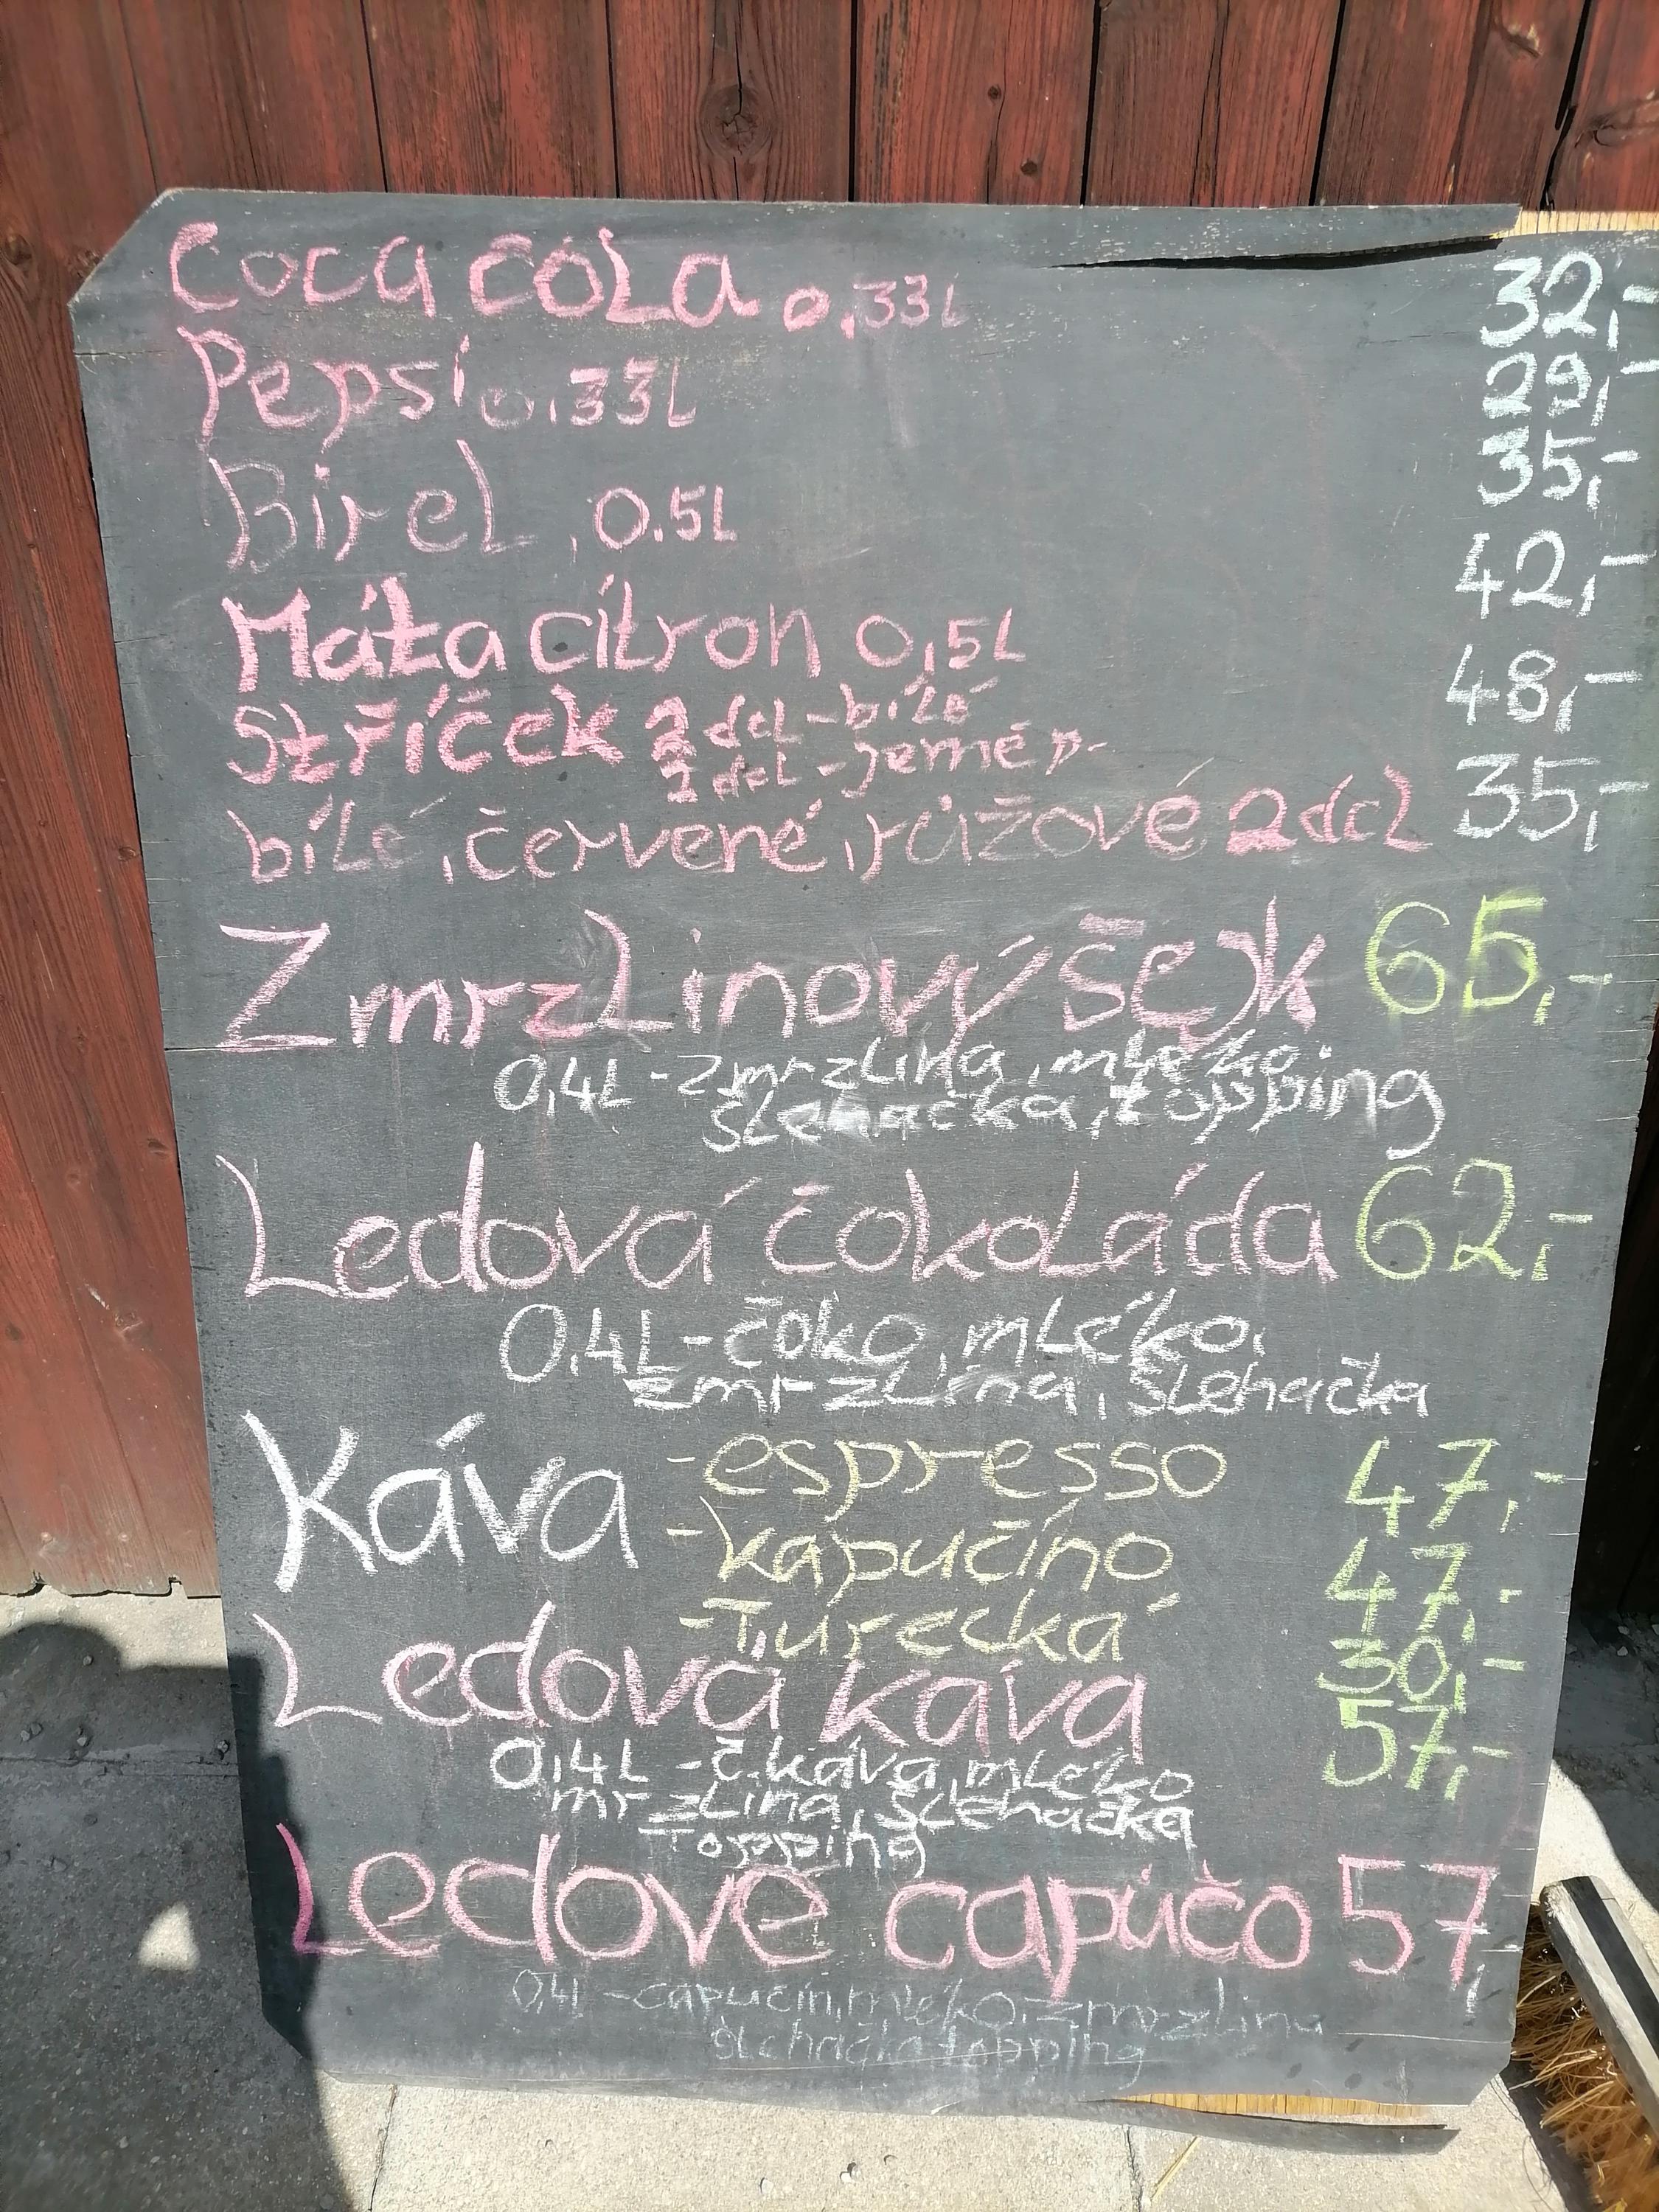 Coca cola 0,33L 32,-
Pepsi 0,33L 29,-
Birel , 0.5L 35,-
Máta citron 0,5L 42,-
Stříček 2 dcl - bílé 48,-
2 dcl - jemně p.
bílé, červené, růžové 2dcl 35,-
Zmrzlinový šejk 65,-
0,4L - zmrzlina, mléko
šlehačka, topping
Ledová čokoláda 62,-
0,4L - čoko, mléko,
zmrzlina, šlehačka
Káva - espresso 47,-
- kapučíno 47,-
- Turecká 30,-
Ledová káva 57,-
0,4L - č.káva, mléko
mrzlina, šlehačka
Topping
Ledové capúčo 57,
0,4L - capučín, mléko, zmrzlina
šlehačka topping